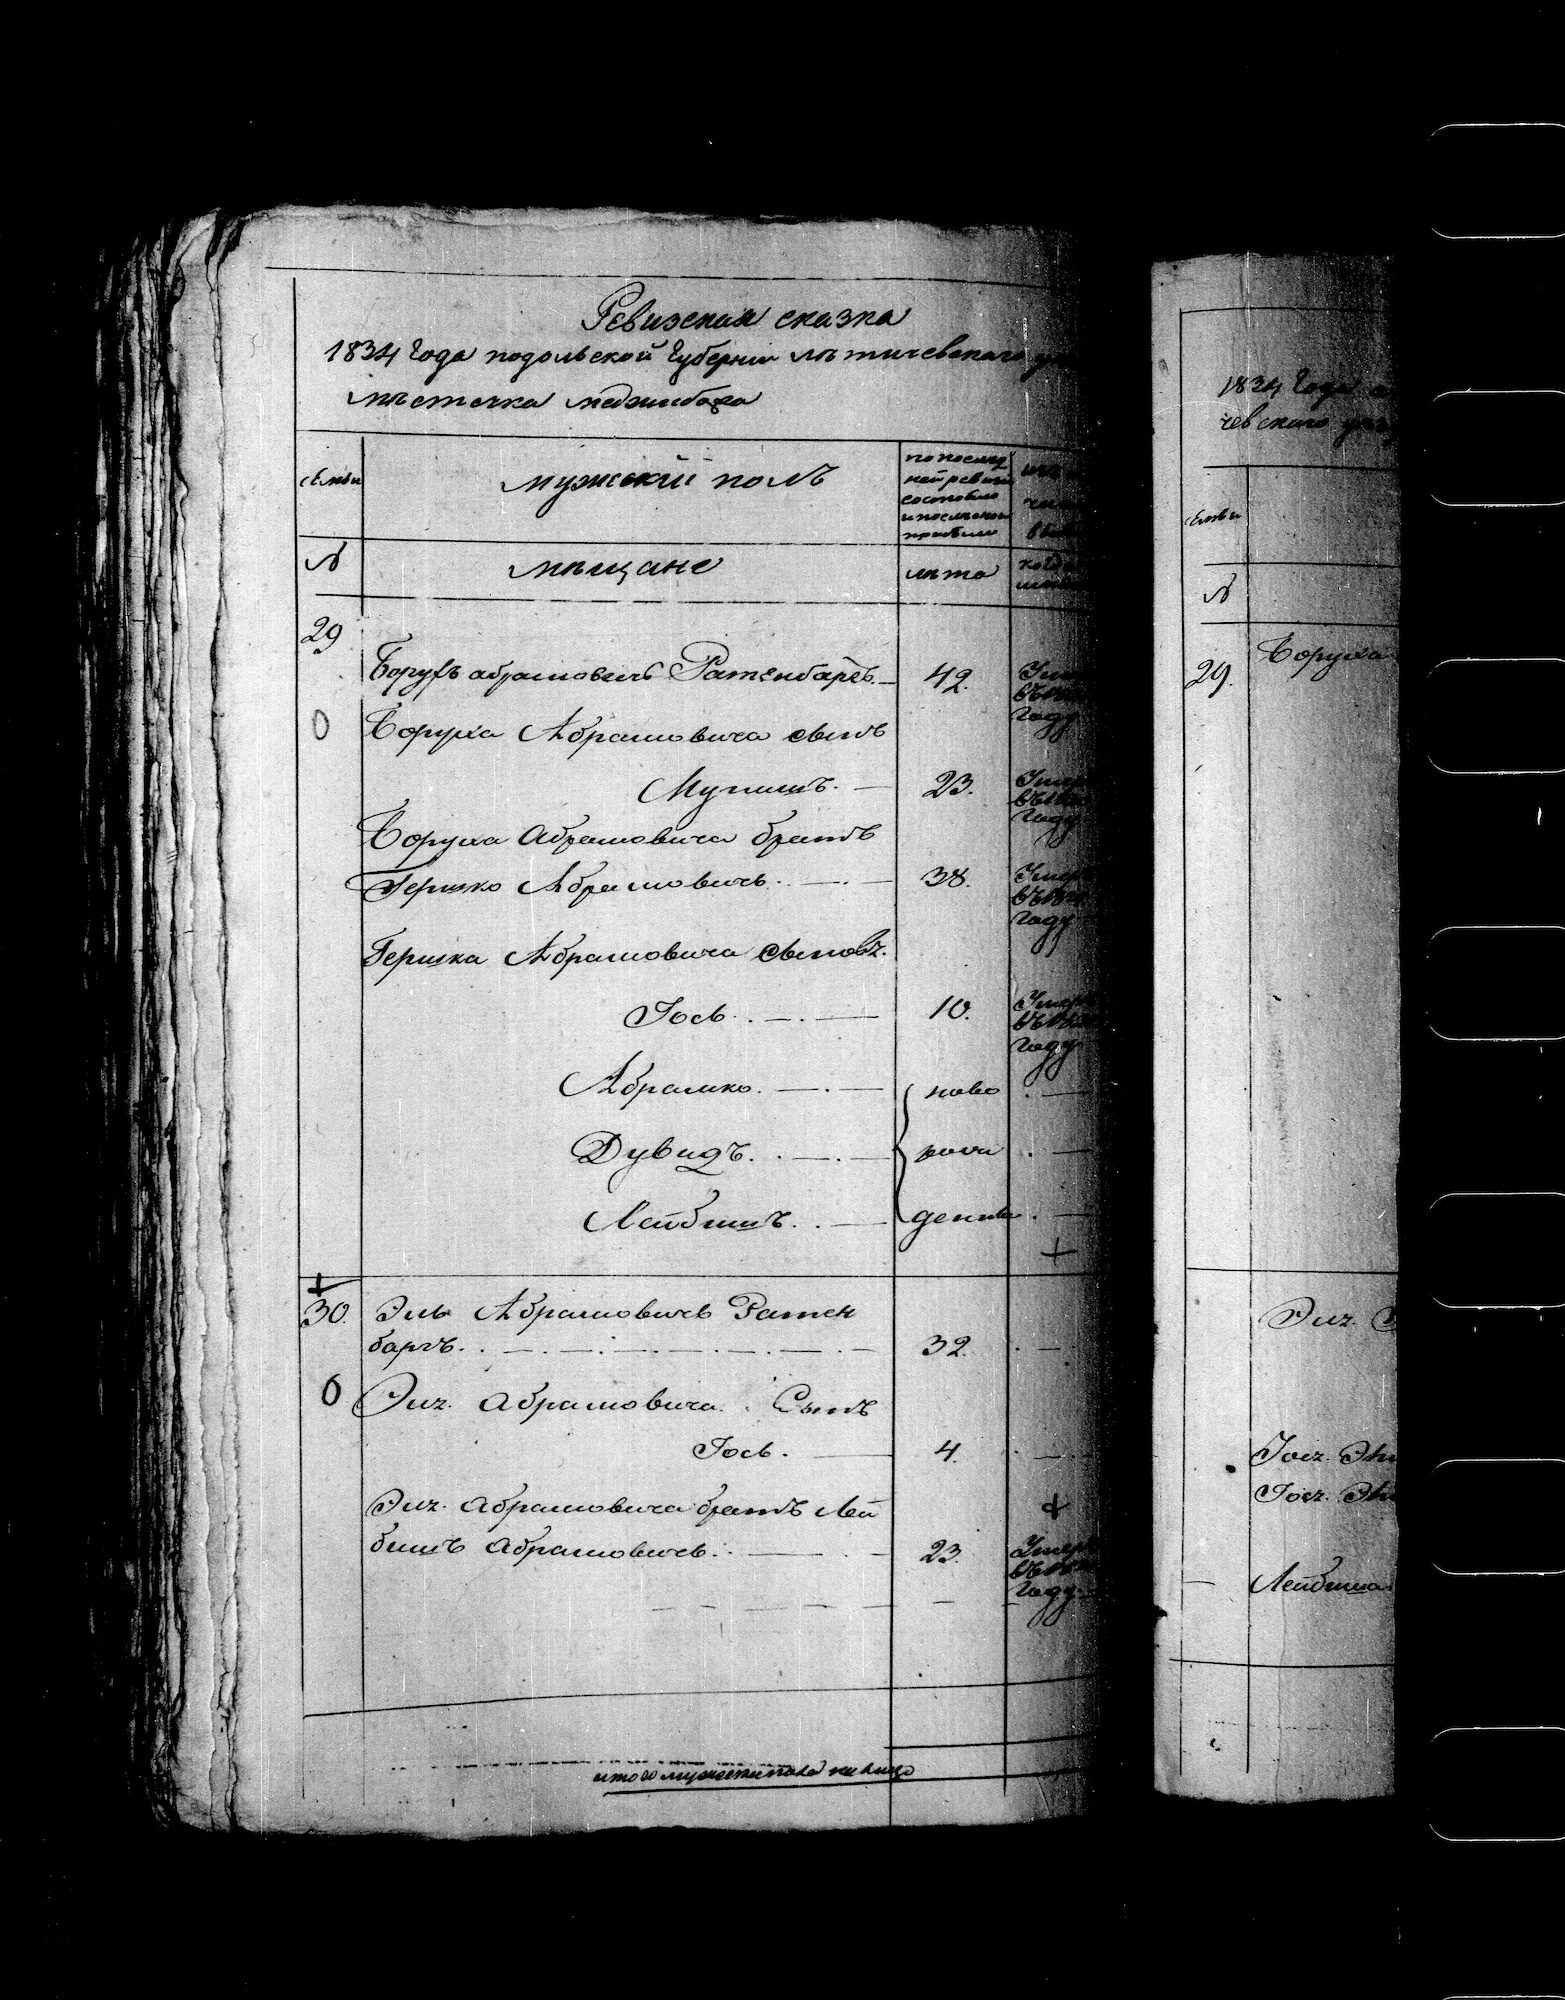 Ревизская сказка
1834 Года подольской Губернии лѣтичевскаго
мѣстечка меджибожа
семьи
мужский полъ
по послед
ней ревизии
состояло
и после оной
прибыло
№
мѣщане
лѣта
29
Борухъ абрамовичъ Ратенбаргъ. 42.
Боруха Абрамовича сынъ
Мунишъ. 23.
Году
Боруха Абрамовича братъ
Гершко Абрамовичъ. 38.
Году
Гершка Абрамовича сыновья.
Іось 10.
Году
Абрамко. ново
Дувидъ. рожд
Лейбишъ. денные
30. Эль Абрамовичъ Ратен
баргъ. 32.
Эля. Абрамовича. Сынъ
Іось. 4.
Эля. Абрамовича братъ Лей
бишъ Абрамовичъ. 23.
Году
итого мужеска пола на лицо
1834 Года
чевского
семьи
№
29. Боруха
Эля.
Іося. Эли
Іося. Эли
Лейбиша